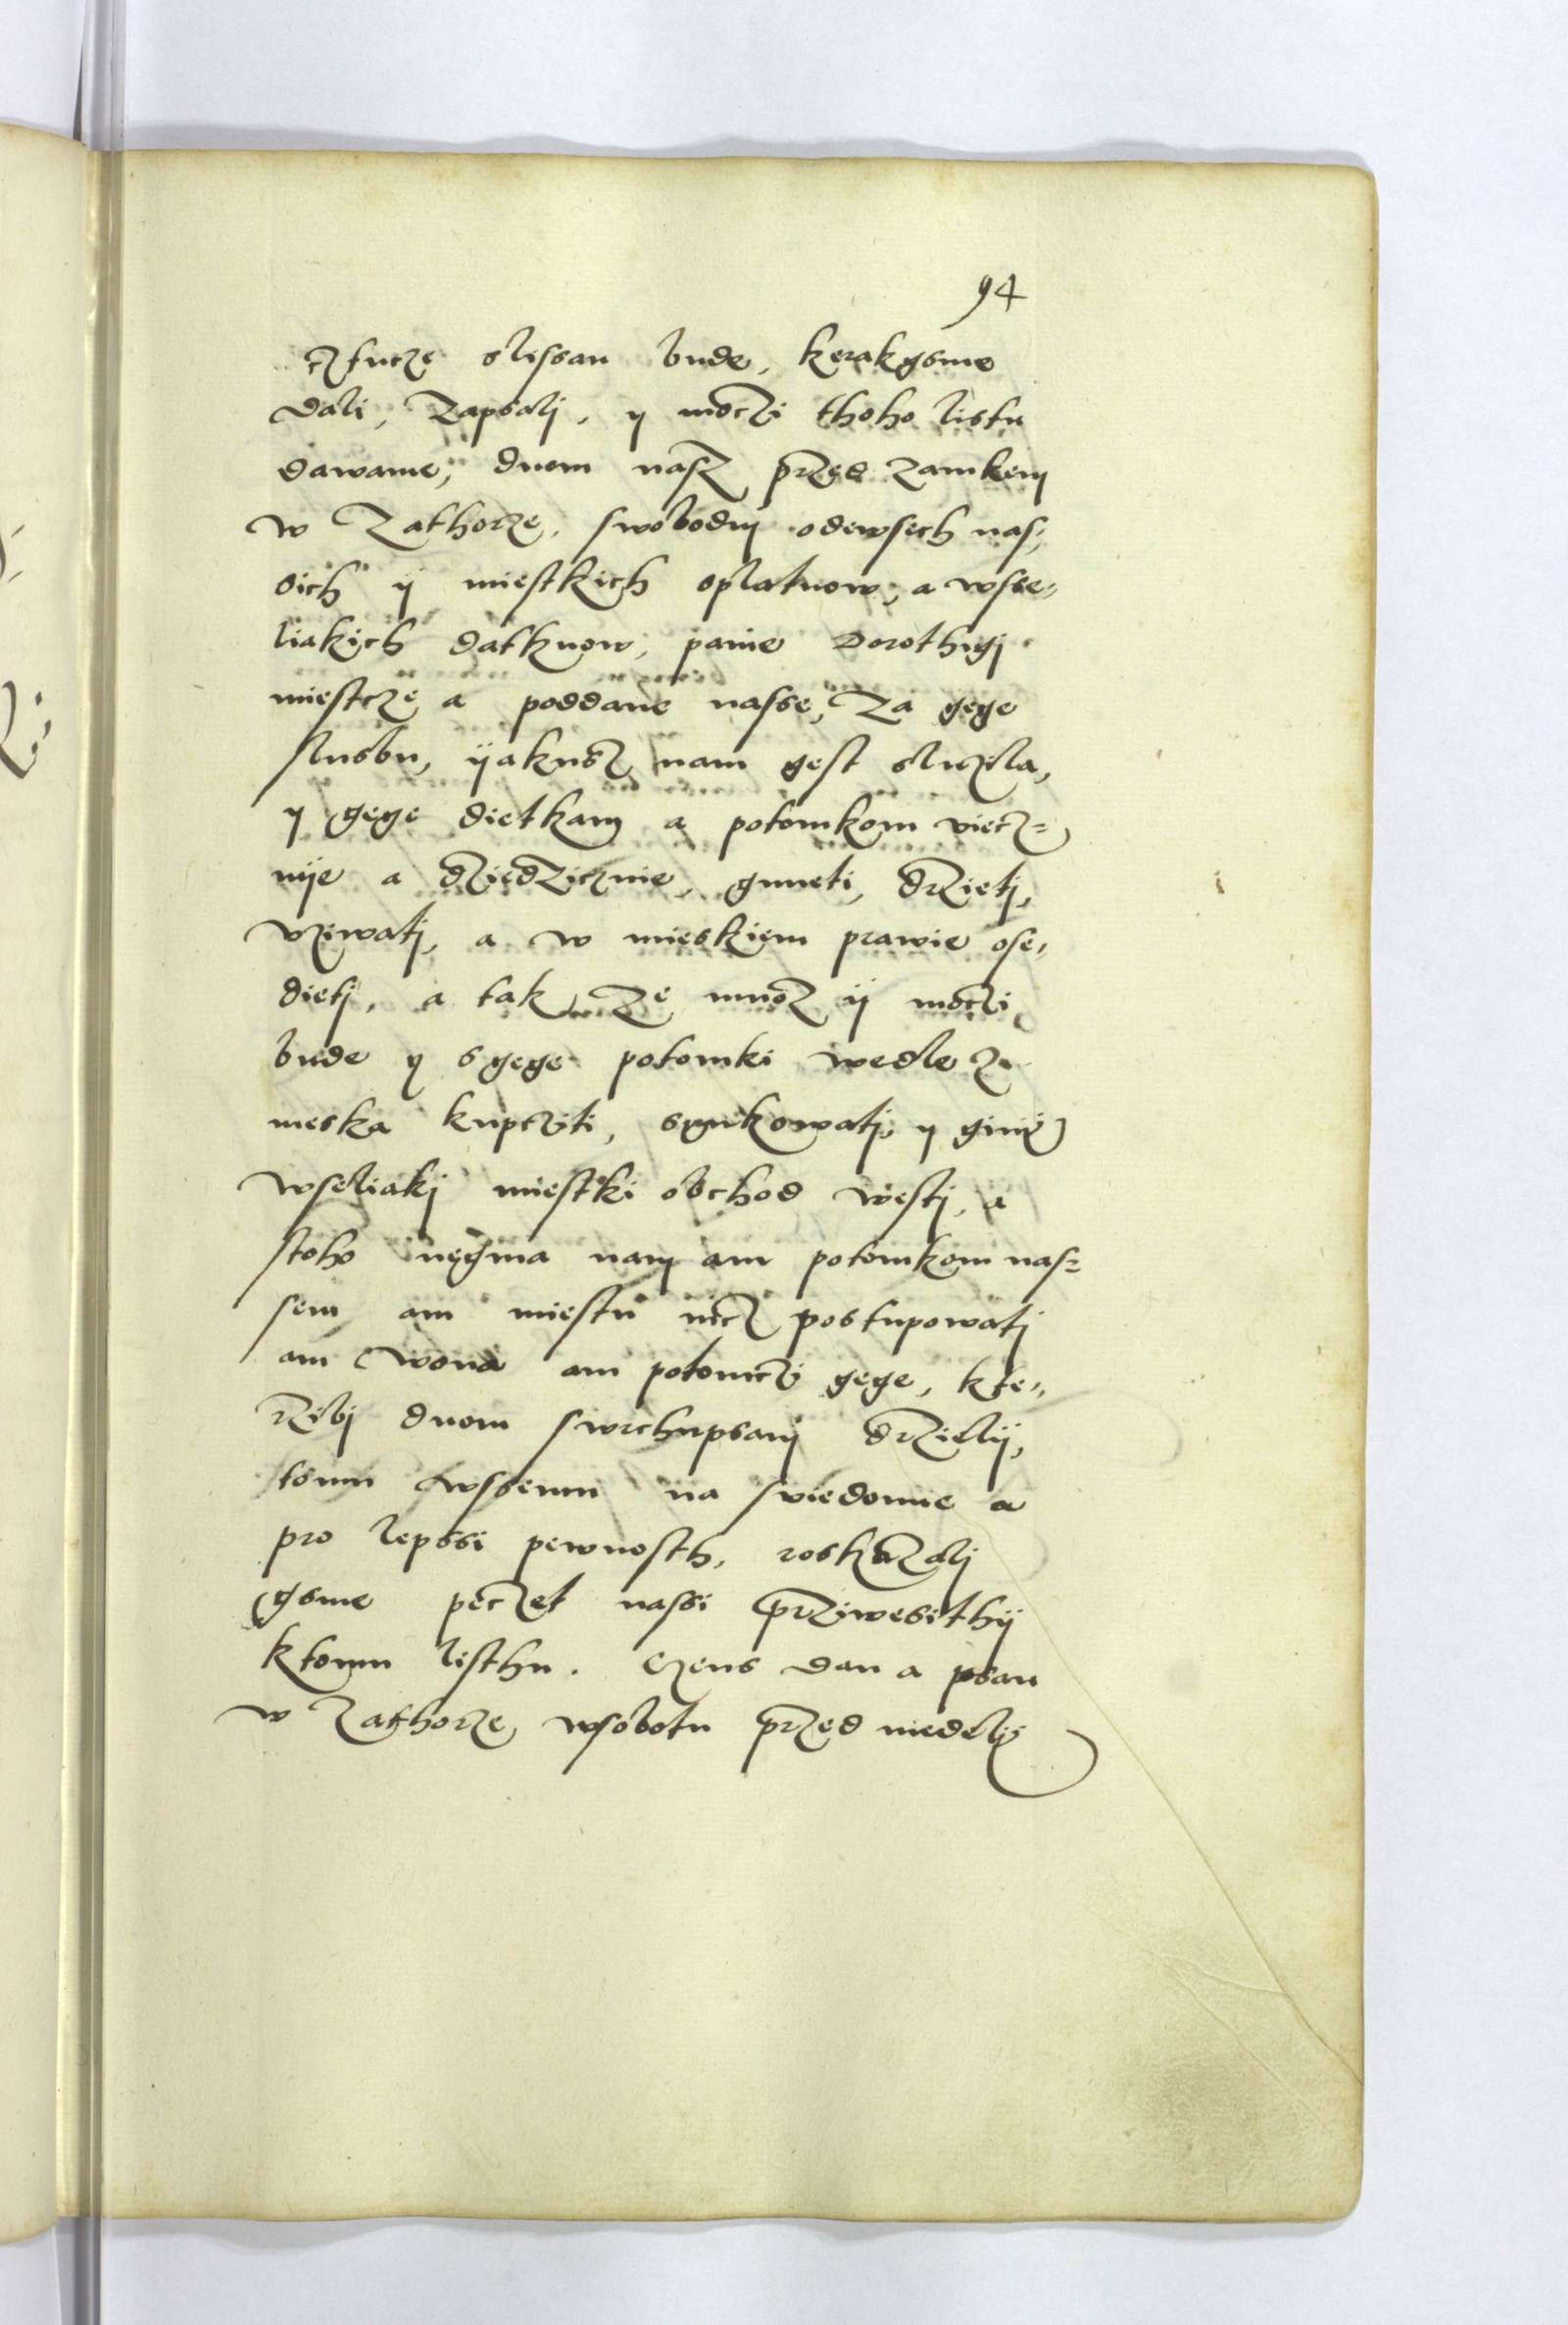 94
cztucze slissan bude, kerak gsme
dali, Zapsalj, y moczi thoho listu
dawame, duom nasz przed Zamkem
w Zathorze, swobodny odewsech nas,
sich ÿ miestkich oplatuow, a wsse,,
liakich datkuow, panie Dorothigj
miestcze a poddane nasse, Za gege
slusbu, ÿakusz nam gest sluzila,
y gege dietkam a potomkom viecz=
nÿe a dziedzicznie, gmneti, drzietj,
vzewatj, a w mieskiem prawie ose,,
dietj, a tak ze mnoz ÿ moczi
bude y s gege potomki wedle ze
meska kupcziti, ssinkowatj, y giny
wseliakj miestki obchod westj, a
stoho negma nam ani potomkom nas=
sem ani miestu nicz postupowatj
ani wona ani potomczi gege, kte,,
rzibj duom swrchupsanj drzielij,
tomu wssemu na swiedomie a
pro lepssi pewnosth, roskazalj
gsme peczet nassi przÿwesithÿ
k tomu listhu. Czens dan a psan
w Zathorze wsobotu przed niedeli